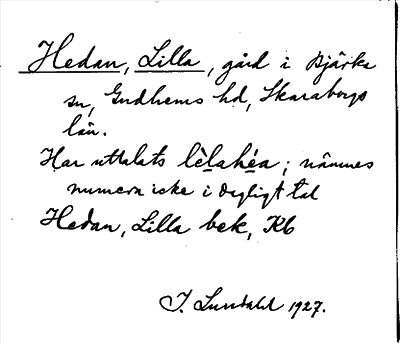 Hedan, Lilla, gård i Bjärka
sn, Gudhems hd, Skaraborgs
län.
Har uttalats lèlahéa; nämnes
numera icke i dagligt tal
Hedan, Lilla bek, Kb
I. Lundahl 1927.